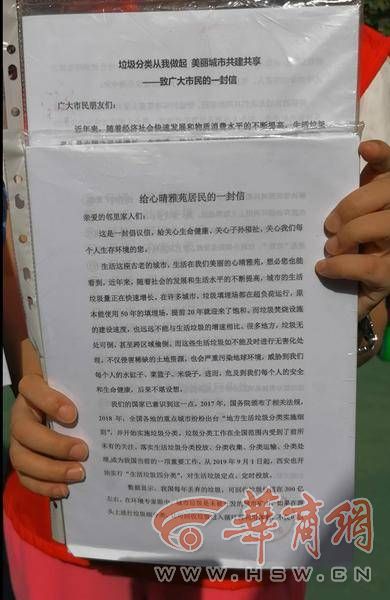 垃圾分类从我做起 美丽城市共建共享
——致广大市民的一封信
广大市民朋友们：
近年来，随着经济社会快速发展和物质消费水平的不断提高，生活垃圾
给心晴雅苑居民的一封信
亲爱的邻里家人们：
这是一封倡议信，给关心生命健康，关心子孙福祉，关心我们每
个人生存环境的您。
生活这座古老的城市，生活在我们美丽的心晴雅苑，想必您也能
看到，近年来，随着社会的发展和生活水平的不断提高，城市的生活
垃圾量正在快速增长，在许多城市，垃圾填埋场都在超负荷运行，原
本能使用 50 年的填埋场，提前 20 年就迎来了饱和，而垃圾焚烧设施
的建设速度，也远远不能与生活垃圾的增速相比。很多地方，垃圾无
处可倒，甚至跨区域偷倒，而这些生活垃圾如不能及时进行无害化处
理，不仅侵害稀缺的土地资源，也会严重污染地球环境，威胁到我们
每个人的水缸子、菜篮子、米袋子，进而，危及到我们每个人的安全
和生命健康，后果不堪设想。
我们的国家已意识到这一点，2017 年，国务院颁布了相关法规，
2018 年，全国各地的重点城市纷纷出台“地方生活垃圾分类实施细
则”，并开始实施垃圾分类，垃圾分类工作在全国范围内受到了前所
未有的关注，落实生活垃圾分类投放、分类收集、分类运输、分类处
理，成为我国当前的一项重要工作，从 2019 年 9 月 1 日起，西安也开
始实行“生活垃圾四分类”，对生活垃圾定点，定时投放。
数据显示，我国每年丢弃的垃圾，可回收垃圾价值在 300 亿
左右，在环境专家眼中，城市垃圾是未被开发的
头上进行垃圾细分，
华商网
WWW.HSW.CN